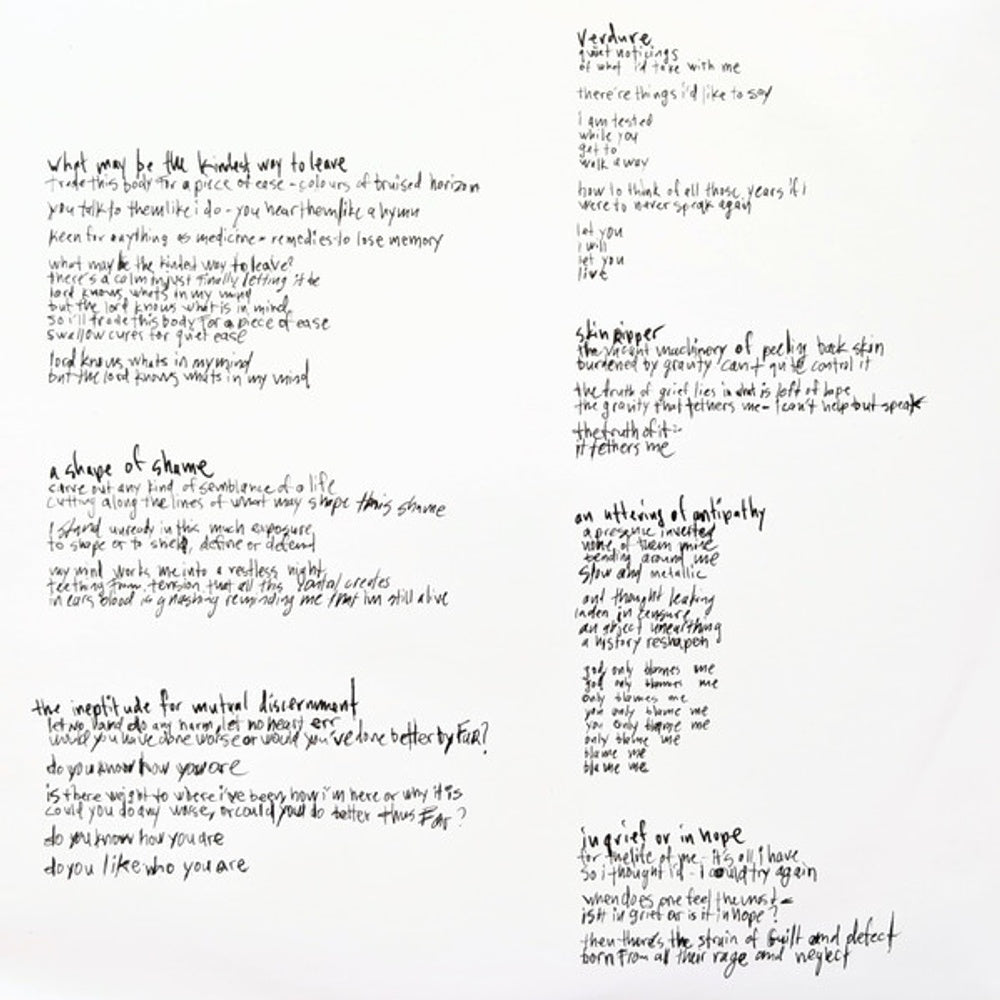 what may be the kindest way to leave
trade this body for a piece of ease - colours of bruised horizon
you talk to them like i do - you hear them like a hymn
keen for anything as medicine - remedies to lose memory
what may be the kindest way to leave?
there's a calm in just finally letting it be
lord knows whats in my mind
but the lord knows what is in mind
so i'll trade this body for a piece of ease
swallow cures for quiet ease
lord knows whats in my mind
but the lord knows whats in my mind
a shape of shame
carve out any kind of semblance of a life
cutting along the lines of what may shape this shame
I stand unready in this much exposure
to shape or to shelp, define or defend
my mind works me into a restless night
teething from tension that all this creates
in ears blood is gnashing reminding me that im still alive
the ineptitude for mutual discernment
let no hand do any harm, let no heart err
would you have done worse or would you've done better by FAR?
do you know how you are
is there weight to where i've been, how i'm here or why it is
could you do any worse, or could you do better thus FAR?
do you know how you are
do you like who you are
verdure
quiet noticings
of what i'd take with me
there're things i'd like to say
i am tested
while you
get to
walk away
how to think of all those years if i
were to never speak again
let you
i will
let you
live
skin ripper
the vacant machinery of peeling back skin
burdened by gravity can't quite control it
the truth of grief lies in what is left of hope
the gravity that tethers me - I can't help but speak
the truth of it:-
it tethers me
an uttering of antipathy
a presence inverted
none of them mine
bending around me
slow and metallic
and thought leaking
laden in censure
an object unearthing
a history reshapen
god only blames me
god only blames me
only blames me
you only blame me
you only blame me
only blame me
blame me
blame me
in grief or in hope
for the life of me - it's all i have
so i thought i'd - I could try again
when does one feel the most -
is it in grief or is it in hope?
then there's the strain of guilt and defect
born from all their rage and neglect